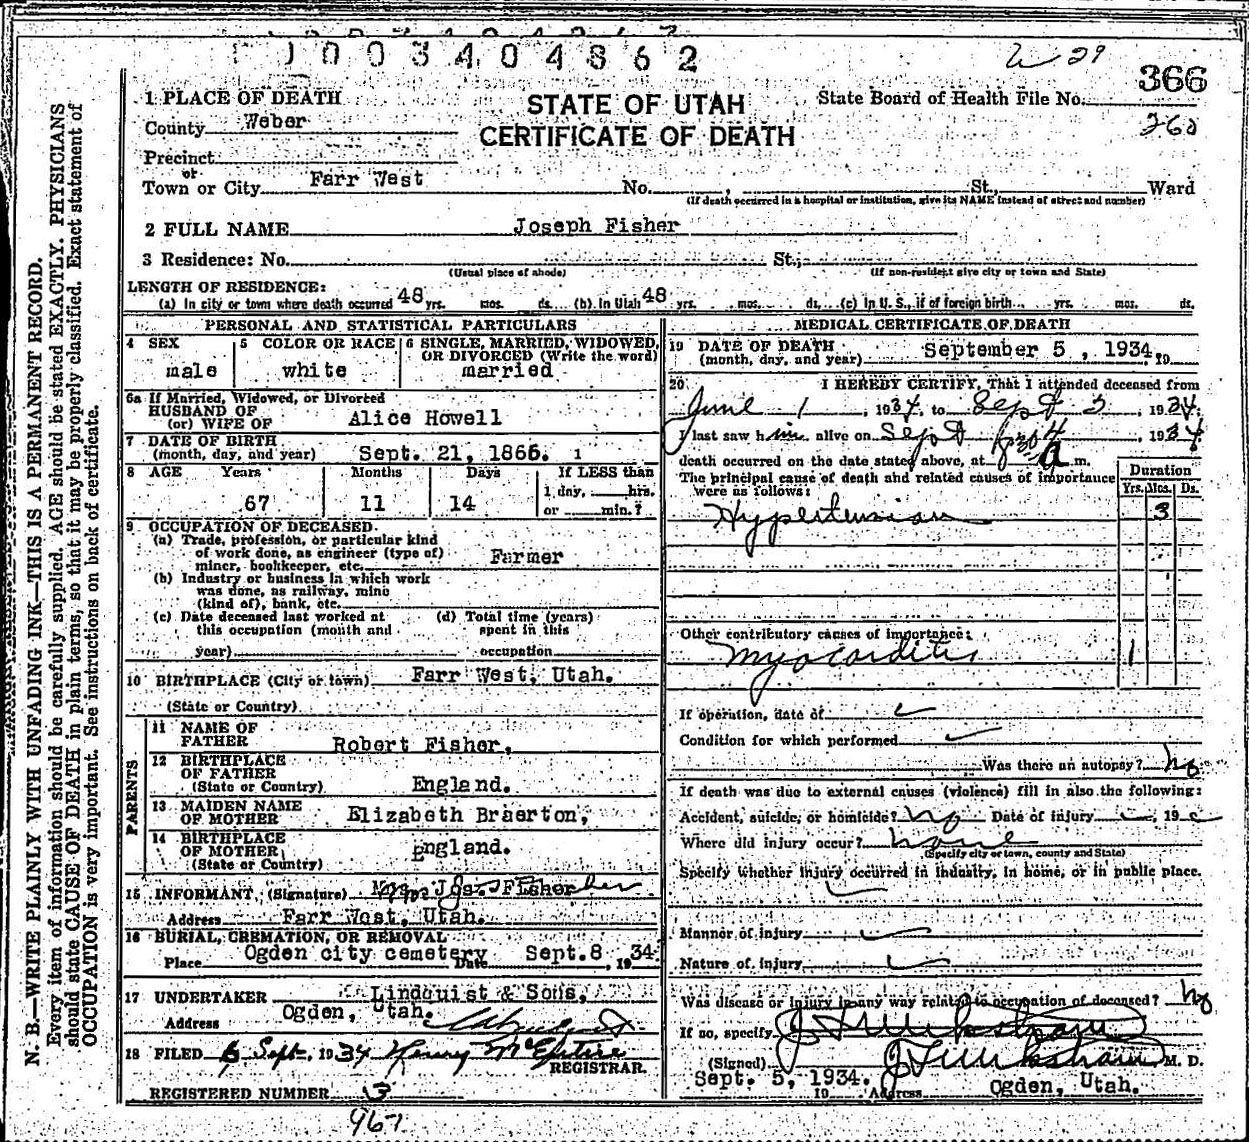 1003404862
366
260
STATE OF UTAH
CERTIFICATE OF DEATH
State Board of Health File No.
1 PLACE OF DEATH
County Weber
Precinct
or
Town or City Farr West No. , St., Ward
(If death occurred in a hospital or institution, give its NAME instead of street and number)
2 FULL NAME Joseph Fisher
3 Residence: No. St.,
(Usual place of abode) (If non-resident give city or town and State)
LENGTH OF RESIDENCE:
(a) In city or town where death occurred 48 yrs. mos. ds. (b) In Utah 48 yrs. mos. ds. (c) In U. S., if of foreign birth yrs. mos. ds.
PERSONAL AND STATISTICAL PARTICULARS
4 SEX
male
5 COLOR OR RACE
white
6 SINGLE, MARRIED, WIDOWED, OR DIVORCED (Write the word)
married
6a If Married, Widowed, or Divorced
HUSBAND OF
(or) WIFE OF Alice Howell
7 DATE OF BIRTH
(month, day, and year) Sept. 21, 1866.
8 AGE Years Months Days If LESS than
67 11 14 1 day, hrs.
or min.?
9 OCCUPATION OF DECEASED
(a) Trade, profession, or particular kind
of work done, as engineer (type of)
miner, bookkeeper, etc. Farmer
(b) Industry or business in which work
was done, as railway, mine
(kind of), bank, etc.
(c) Date deceased last worked at
this occupation (month and
year)
(d) Total time (years)
spent in this
occupation
10 BIRTHPLACE (City or town) Farr West, Utah.
(State or Country)
PARENTS
11 NAME OF
FATHER Robert Fisher,
12 BIRTHPLACE
OF FATHER
(State or Country) England.
13 MAIDEN NAME
OF MOTHER Elizabeth Braerton,
14 BIRTHPLACE
OF MOTHER
(State or Country) England.
15 INFORMANT (Signature) Mrs. Jos. Fisher
Address Farr West, Utah.
16 BURIAL, CREMATION, OR REMOVAL
Place Ogden city cemetery Date Sept. 8, 1934
17 UNDERTAKER Lindquist & Sons,
Address Ogden, Utah.
18 FILED 6 Sept, 1934 Henry McEntire
REGISTRAR.
REGISTERED NUMBER 13
967
MEDICAL CERTIFICATE OF DEATH
19 DATE OF DEATH
(month, day, and year) September 5, 1934, 19
20 I HEREBY CERTIFY, That I attended deceased from
June 1, 1934, to Sept 5, 1934.
I last saw him alive on Sept 4, 1934
death occurred on the date stated above, at a m.
The principal cause of death and related causes of importance
were as follows:
Duration
Yrs. Mos. Ds.
Hypertension 3
Other contributory causes of importance:
Myocarditis 1
If operation, date of
Condition for which performed
Was there an autopsy? no
If death was due to external causes (violence) fill in also the following:
Accident, suicide, or homicide? no Date of injury , 19
Where did injury occur? none
(Specify city or town, county and State)
Specify whether injury occurred in industry, in home, or in public place.
Manner of injury
Nature of injury
Was disease or injury in any way related to occupation of deceased? no
If so, specify
(Signed) M. D.
Sept. 5, 1934. 19 Address Ogden, Utah.
N. B.—WRITE PLAINLY WITH UNFADING INK—THIS IS A PERMANENT RECORD.
Every item of information should be carefully supplied. AGE should be stated EXACTLY. PHYSICIANS
should state CAUSE OF DEATH in plain terms, so that it may be properly classified. Exact statement of
OCCUPATION is very important. See instructions on back of certificate.